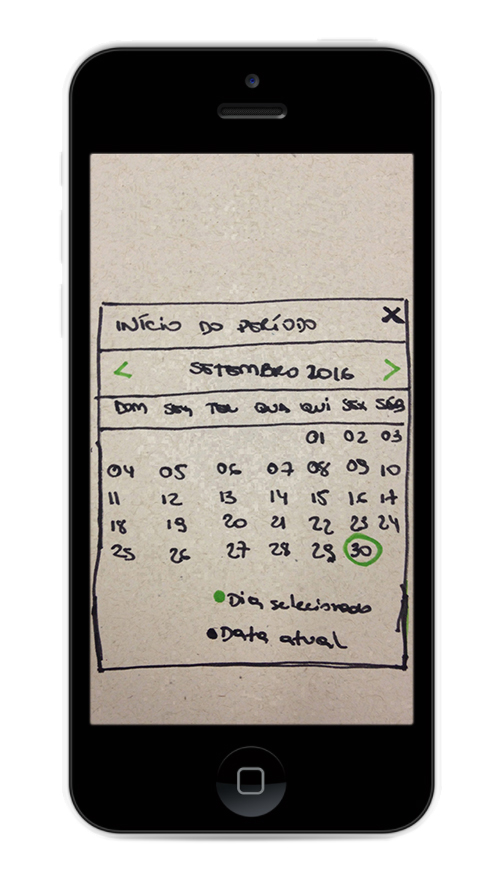 INÍCIO DO PERÍODO X
< SETEMBRO 2016 >
DOM SEG TER QUA QUI SEX SÁB
01 02 03
04 05 06 07 08 09 10
11 12 13 14 15 16 17
18 19 20 21 22 23 24
25 26 27 28 29 30
Dia selecionado
Data atual